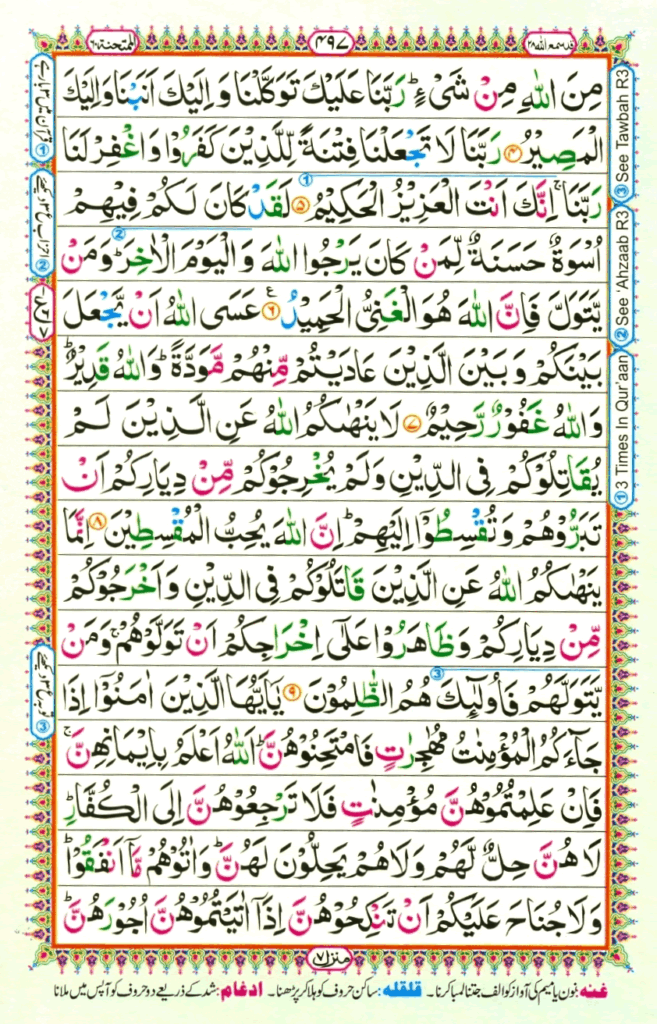 قد سمع الله ٢٨
٤٩٧
الممتحنة ٦٠
مِنَ اللّٰهِ مِنْ شَیْءٍ ؕ رَبَّنَا عَلَیْكَ تَوَكَّلْنَا وَ اِلَیْكَ اَنَبْنَا وَ اِلَیْكَ
الْمَصِیْرُ ۝۴ رَبَّنَا لَا تَجْعَلْنَا فِتْنَةً لِّلَّذِیْنَ كَفَرُوْا وَ اغْفِرْ لَنَا
رَبَّنَا ۚ اِنَّكَ اَنْتَ الْعَزِیْزُ الْحَكِیْمُ ۝۵ لَقَدْ كَانَ لَكُمْ فِیْهِمْ
اُسْوَةٌ حَسَنَةٌ لِّمَنْ كَانَ یَرْجُوا اللّٰهَ وَ الْیَوْمَ الْاٰخِرَ ؕ وَ مَنْ
یَّتَوَلَّ فَاِنَّ اللّٰهَ هُوَ الْغَنِیُّ الْحَمِیْدُ ۝۶ ع عَسَی اللّٰهُ اَنْ یَّجْعَلَ
بَیْنَكُمْ وَ بَیْنَ الَّذِیْنَ عَادَیْتُمْ مِّنْهُمْ مَّوَدَّةً ؕ وَ اللّٰهُ قَدِیْرٌ ؕ
وَ اللّٰهُ غَفُوْرٌ رَّحِیْمٌ ۝۷ لَا یَنْهٰىكُمُ اللّٰهُ عَنِ الَّذِیْنَ لَمْ
یُقَاتِلُوْكُمْ فِی الدِّیْنِ وَ لَمْ یُخْرِجُوْكُمْ مِّنْ دِیَارِكُمْ اَنْ
تَبَرُّوْهُمْ وَ تُقْسِطُوْۤا اِلَیْهِمْ ؕ اِنَّ اللّٰهَ یُحِبُّ الْمُقْسِطِیْنَ ۝۸ اِنَّمَا
یَنْهٰىكُمُ اللّٰهُ عَنِ الَّذِیْنَ قَاتَلُوْكُمْ فِی الدِّیْنِ وَ اَخْرَجُوْكُمْ
مِّنْ دِیَارِكُمْ وَ ظَاهَرُوْا عَلٰۤی اِخْرَاجِكُمْ اَنْ تَوَلَّوْهُمْ ۚ وَ مَنْ
یَّتَوَلَّهُمْ فَاُولٰٓىِٕكَ هُمُ الظّٰلِمُوْنَ ۝۹ یٰۤاَیُّهَا الَّذِیْنَ اٰمَنُوْۤا اِذَا
جَآءَكُمُ الْمُؤْمِنٰتُ مُهٰجِرٰتٍ فَامْتَحِنُوْهُنَّ ؕ اَللّٰهُ اَعْلَمُ بِاِیْمَانِهِنَّ ۚ
فَاِنْ عَلِمْتُمُوْهُنَّ مُؤْمِنٰتٍ فَلَا تَرْجِعُوْهُنَّ اِلَی الْكُفَّارِ ؕ
لَا هُنَّ حِلٌّ لَّهُمْ وَ لَا هُمْ یَحِلُّوْنَ لَهُنَّ ؕ وَ اٰتُوْهُمْ مَّاۤ اَنْفَقُوْا ؕ
وَ لَا جُنَاحَ عَلَیْكُمْ اَنْ تَنْكِحُوْهُنَّ اِذَاۤ اٰتَیْتُمُوْهُنَّ اُجُوْرَهُنَّ ؕ
③ See Tawbah R3
② See 'Ahzaab R3
① 3 Times In Qur'aan
منزل ۷
غنہ: نون یا میم کی آواز کو الف جتنا لمبا کرنا۔ قلقلہ: ساکن حروف کو ہلا کر پڑھنا۔ ادغام: شد کے ذریعے دو حروف کو آپس میں ملانا